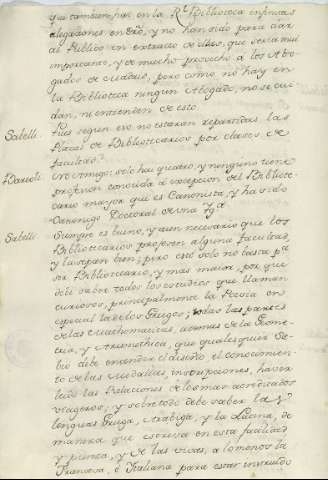 y que tambien hay en la Rl. Bibliotheca infinitas
alegaciones en dro, y no han sido para dar
al Publico un extracto de ellas, que seria mui
importante, y de mucho provecho a los Abo-
gados de Madrid, pero como no hay en
la Bibliotheca ningun Abogado, no se cui-
dan, ni entienden de esto
Sabelli. Pues segun eso no estaran repartidas las
Plazas de Bibliotecarios por clases de
facultad?
no Amigo: solo hay quatro, y ninguno tiene
profesion conocida a excepcion del Bibliote-
cario mayor que es Canonista, y ha sido
Canonigo Doctoral de una Yga.
Sabelli. Aunque es bueno, y aun necesario que los
Bibliotecarios profesen alguna facultad,
y la sepan bien; pero esto solo no basta pa.
ser Bibliotecario, y mas maior, por que
debe saber todos los estudios que llaman
curiosos, principalmente la Poesia en
especial la de los Griegos; todas las partes
de las Mathematicas, ademas de la Geome-
tria, y Arismethica, que qualesquier De-
be debe entender el diseño, el conocimien-
to de las Medallas, inscripciones, haver
leido las Relaciones de los mas acreditados
viageros; y sobre todo debe saber las
lenguas Griega, Arabiga, y la Latina, de
manera que escriva en esta facilidad
y pureza, y de las vivas, a lo menos la
Francesa, è Italiana para estar instruido